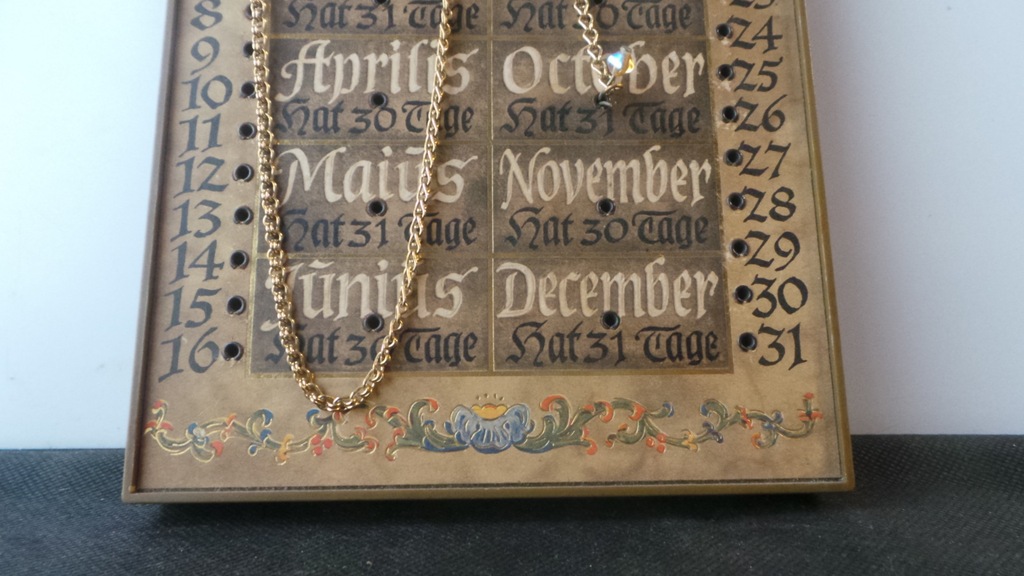 8
9
10
11
12
13
14
15
16
Hat 31 Tage
Aprilis
Hat 30 Tage
Maiŭs
Hat 31 Tage
Jŭnius
Hat 30 Tage
Tage
October
Hat 31 Tage
November
Hat 30 Tage
December
Hat 31 Tage
24
25
26
27
28
29
30
31